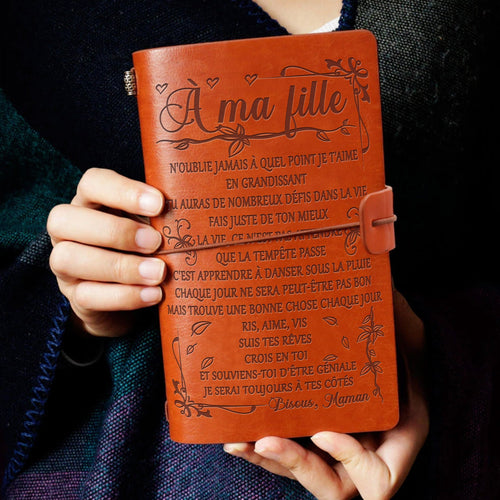 À ma fille
N'OUBLIE JAMAIS À QUEL POINT JE T'AIME
EN GRANDISSANT
TU AURAS DE NOMBREUX DÉFIS DANS LA VIE
FAIS JUSTE DE TON MIEUX
LA VIE, CE N'EST PAS ATTENDRE
QUE LA TEMPÊTE PASSE
C'EST APPRENDRE À DANSER SOUS LA PLUIE
CHAQUE JOUR NE SERA PEUT-ÊTRE PAS BON
MAIS TROUVE UNE BONNE CHOSE CHAQUE JOUR
RIS, AIME, VIS
SUIS TES RÊVES
CROIS EN TOI
ET SOUVIENS-TOI D'ÊTRE GÉNIALE
JE SERAI TOUJOURS À TES CÔTÉS
Bisous, Maman